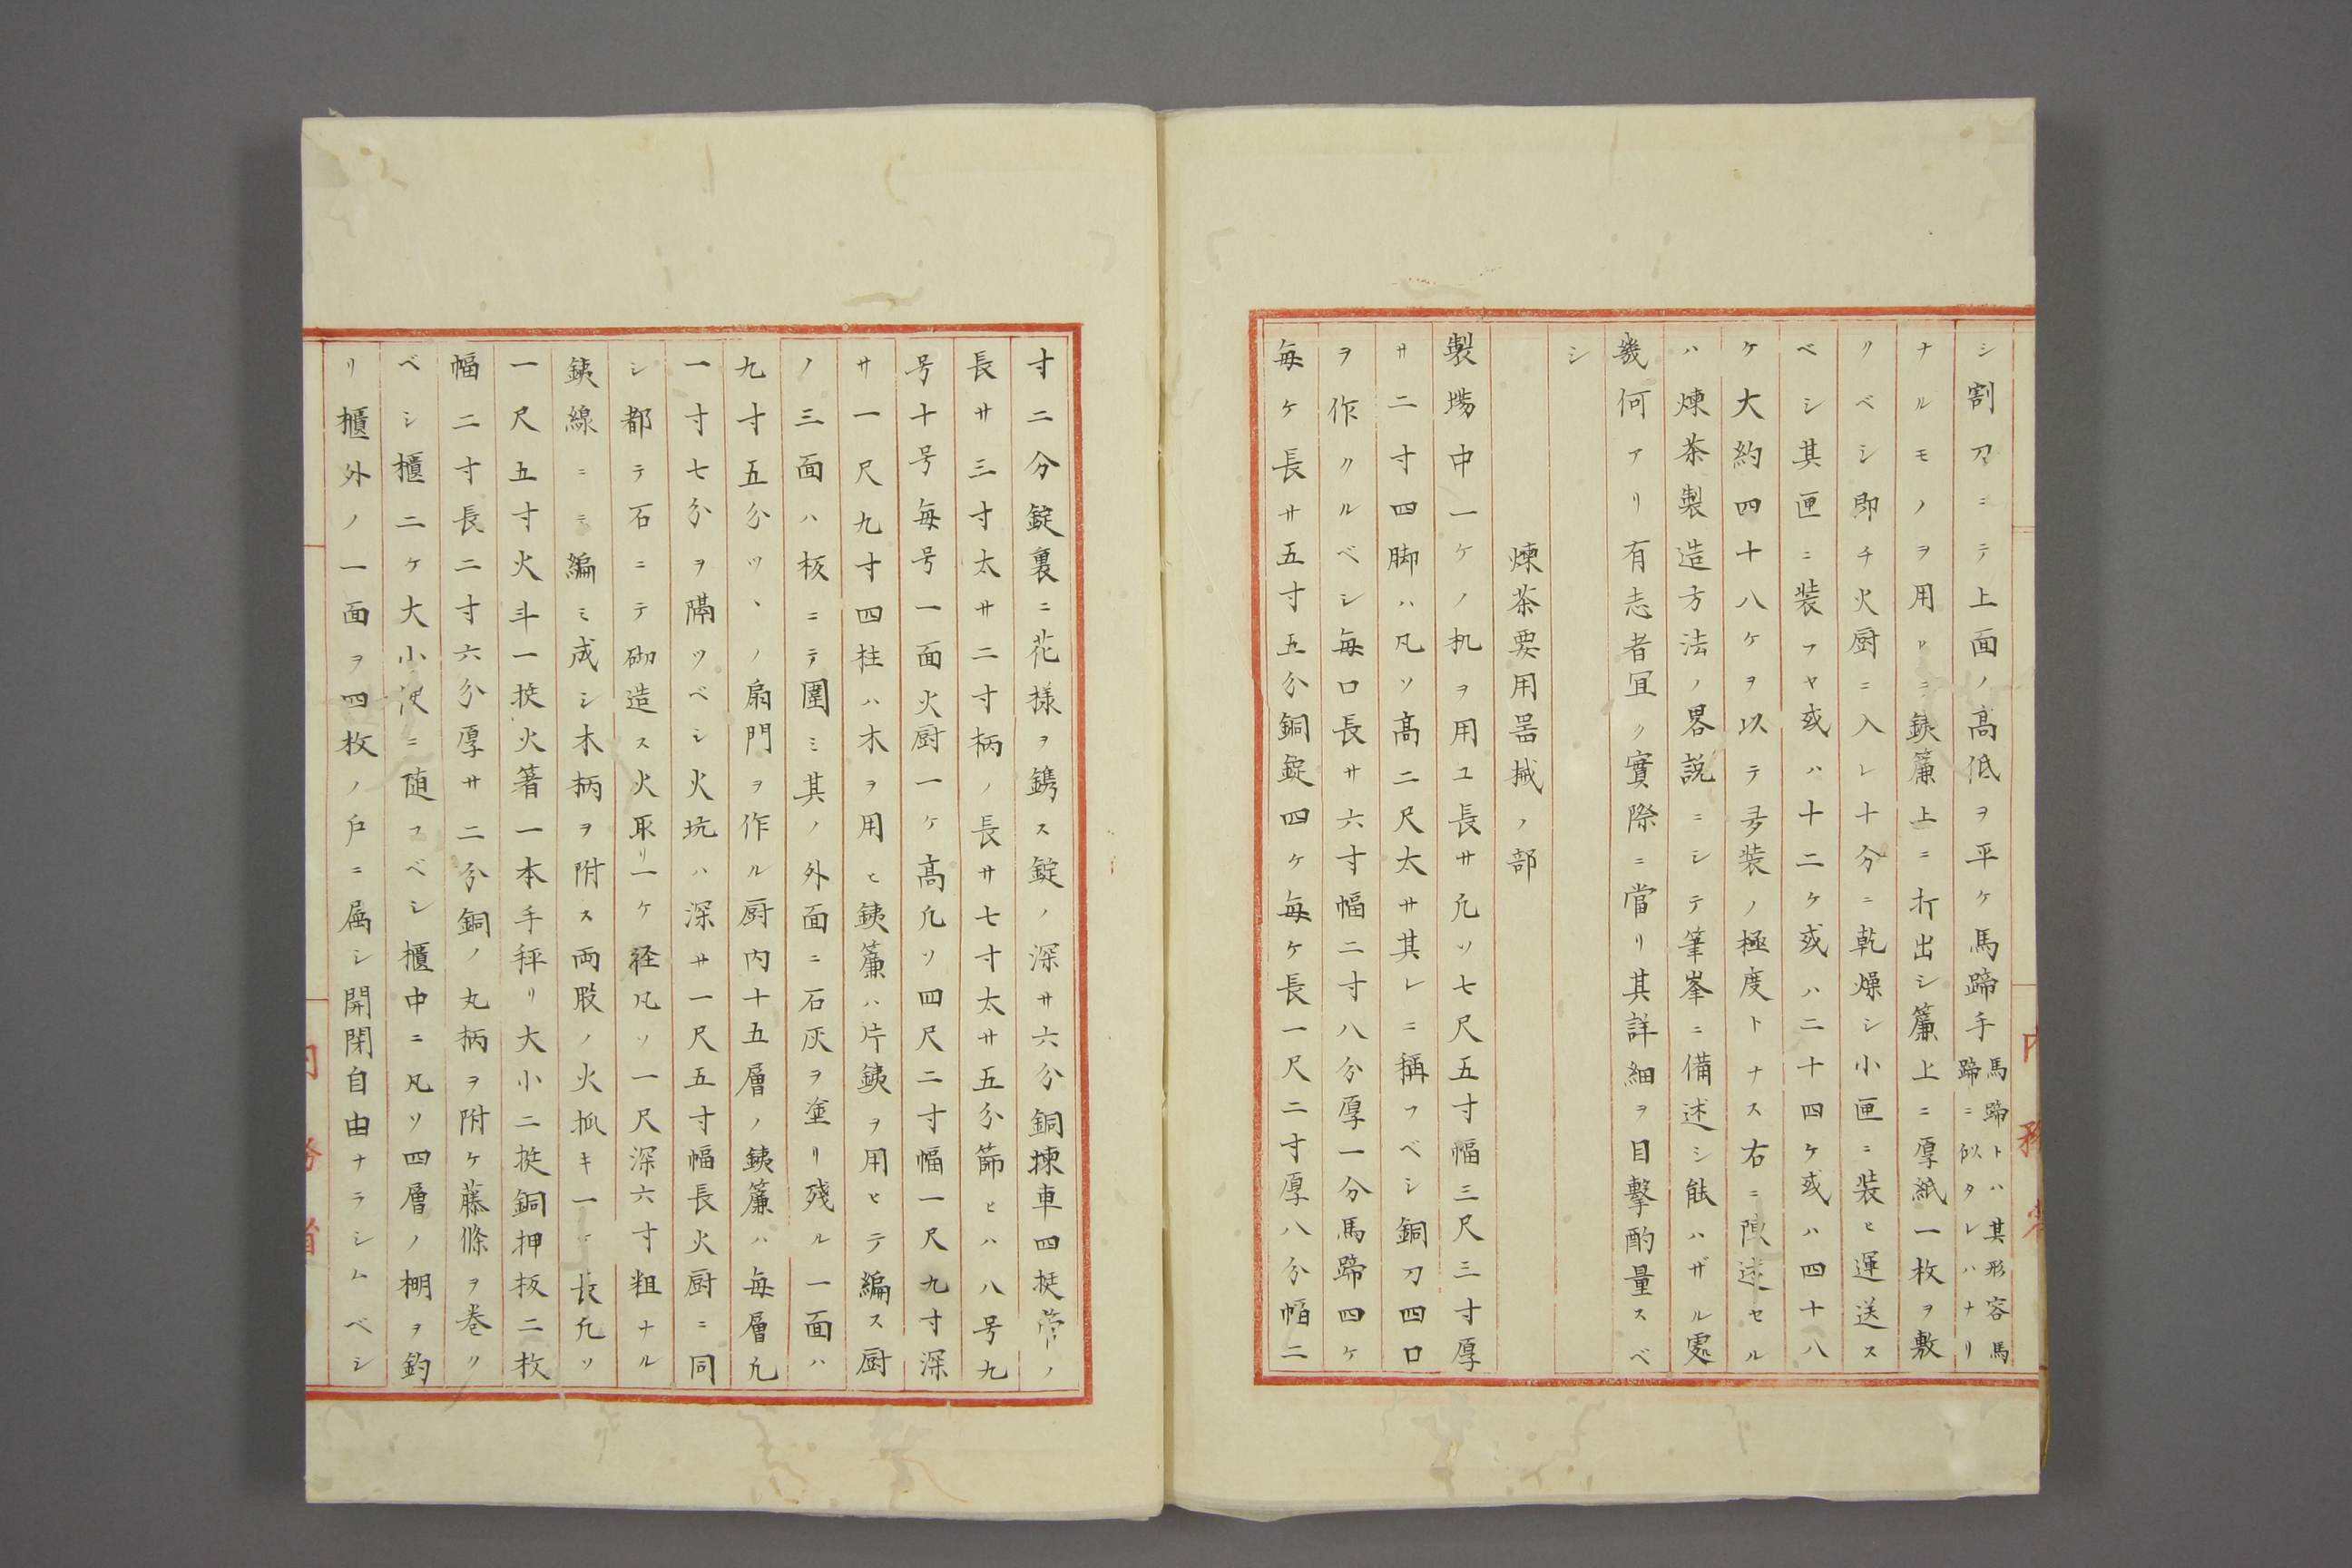 シ割刀ニテ上面ノ高低ヲ平ケ馬蹄手馬蹄トハ其形容馬
蹄ニ似タレハナリ
ナルモノヲ用ヒ銕簾上ニ打出シ簾上ニ厚紙一枚ヲ敷
リベシ即チ火厨ニ入レ十分ニ乾燥シ小匣ニ装ヒ運送ス
ベシ其匣ニ装フヤ或ハ十二ケ或ハ二十四ケ或ハ四十八
ケ大約四十八ケヲ以テ装ノ極度トナス右ニ陳述セル
ハ煉茶製造方法ノ畧説ニシテ筆峯ニ備述シ能ハザル處
幾何アリ有志者冝ク實際ニ當リ其詳細ヲ目撃酌量スベ
シ
煉茶要用噐械ノ部
製塲中一ケノ机ヲ用ユ長サ凢ソ七尺五寸幅三尺三寸厚
サ二寸四脚ハ凡ソ髙二尺太サ其レニ稱フベシ銅刀四口
ヲ作クルベシ毎口長サ六寸幅二寸八分厚一分馬蹄四ケ
毎ケ長サ五寸五分銅錠四ケ毎ケ長一尺二寸厚八分幅二
寸二分錠裏ニ花様ヲ鐫ス錠ノ深サ六分銅揀車四挺管ノ
長サ三寸太サ二寸柄ノ長サ七寸太サ五分篩ヒハ八号九
号十号毎号一面火厨一ケ髙凢ソ四尺二寸幅一尺九寸深
サ一尺九寸四柱ハ木ヲ用ヒ銕簾ハ片銕ヲ用ヒテ編ス厨
ノ三面ハ板ニテ圍ミ其ノ外面ニ石灰ヲ塗リ残ル一面ハ
九寸五分ツヽノ扇門ヲ作ル厨内十五層ノ銕簾ハ毎層凢
一寸七分ヲ隔ツベシ火坑ハ深サ一尺五寸幅長火厨ニ同
シ都テ石ニテ砌造ス火取リ一ケ径凡ソ一尺深六寸粗ナル
銕線ニテ編ミ成シ木柄ヲ附ス両股ノ火抓キ一ケ長凢ソ
一尺五寸火斗一挺火箸一本手秤リ大小二挺銅押板二枚
幅二寸長二寸六分厚サ二分銅ノ丸柄ヲ附ケ藤條ヲ巻ク
ベシ櫃二ケ大小便ニ随フベシ櫃中ニ凡ソ四層ノ棚ヲ釣
リ櫃外ノ一面ヲ四枚ノ戸ニ属シ開閉自由ナラシムベシ
内務省